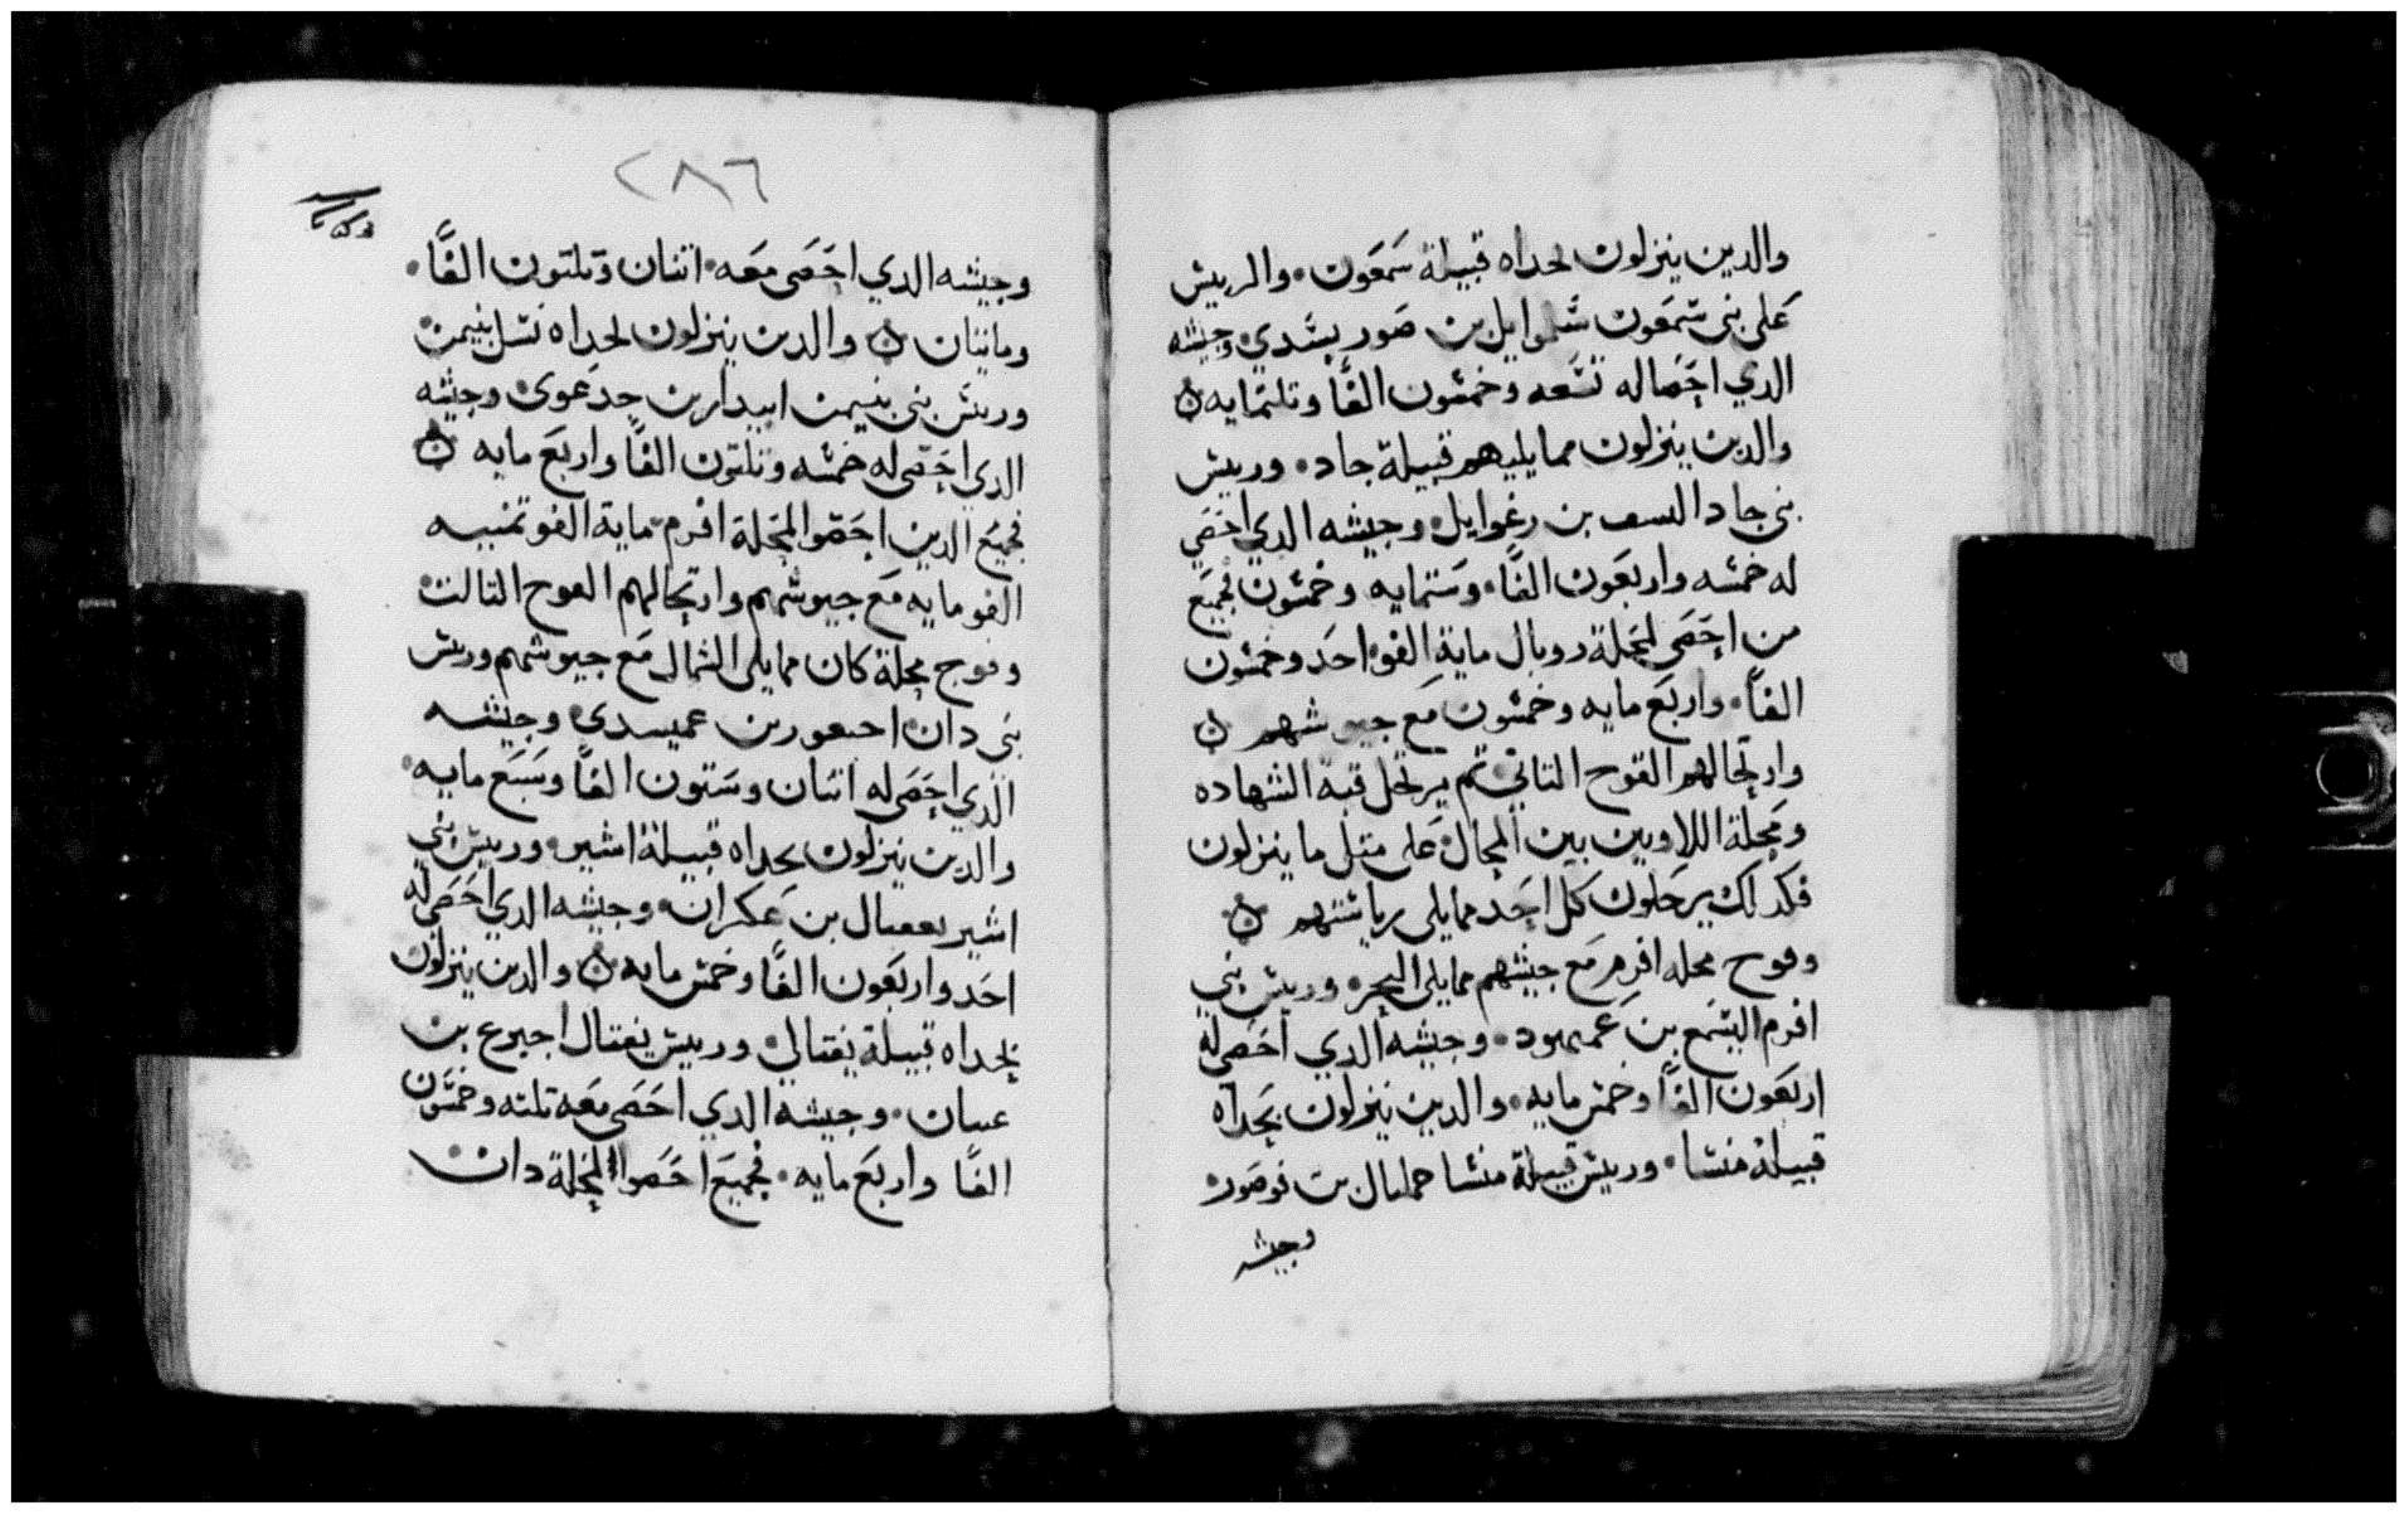 والدين ينزلون لحداه قبيلة سمعون والرييش
على بنى شمعون شلموايل بن صور يشدي وجيشه
الدي احصاله تسعه وخمسون الفا وتلتمايه
والدين ينزلون ممايليهم قبيلة جاد ورييش
بنى جاد السف بن رعوايل وجيشه الدي احصي
له خمسه واربعون الفا وستمايه وخمسون فجميع
من احصى لمحلة روبال ماية الفو احد وخمسون
الفا واربع مايه وخمسون مع جيوشهم
وارتحالهم الفوج التاني تم يرتحل قبة الشهاده
ومحلة اللاويين بين المحال على متل ما ينزلون
فكدلك يرحلون كل احد ممايلى رياستهم
وفوج محله افرم مع جيشهم ممايلى البحر ورييش بني
افرم اليشمع بن عميهود وجيشه الدي احصى له
اربعون الفا وخمس مايه والدين ينزلون بحداه
قبيلة منشا ورييش قبيلة منشا حمليال بن فوصور
وجيشه
٢٨٦
وجيشه الدي احصى معه اتنان وتلتون الفا
وماتيتان والدين ينزلون لحداه نسل بنيمن
ورييش بنى بنيمن ابيدان بن جدعوى وجيشه
الدي احصى له خمسه وتلتون الفا واربع مايه
فجميع الدين احصوا لمحلة افرم ماية الفو تمنيه
الفو مايه مع جيوشهم وارتحالهم الفوج التالت
وفوج محلة كان ممايلى الشمال مع جيوشهم ورييش
بنى دان احيعور بن عميسدي وجيشه
الدي احصى له اتنان وستون الفا وسبع مايه
والدين ينزلون بحداه قبيلة اشير ورييش بني
اشير بععيال بن عكران وجيشه الدي احصى له
احد واربعون الفا وخمس مايه والدين ينزلون
بحداه قبيلة يفتالي ورييش يفتال اجيرع بن
عينان وجيشه الدي احصى معه تلته وخمسون
الفا واربع مايه فجميع احصوا لمحلة دان